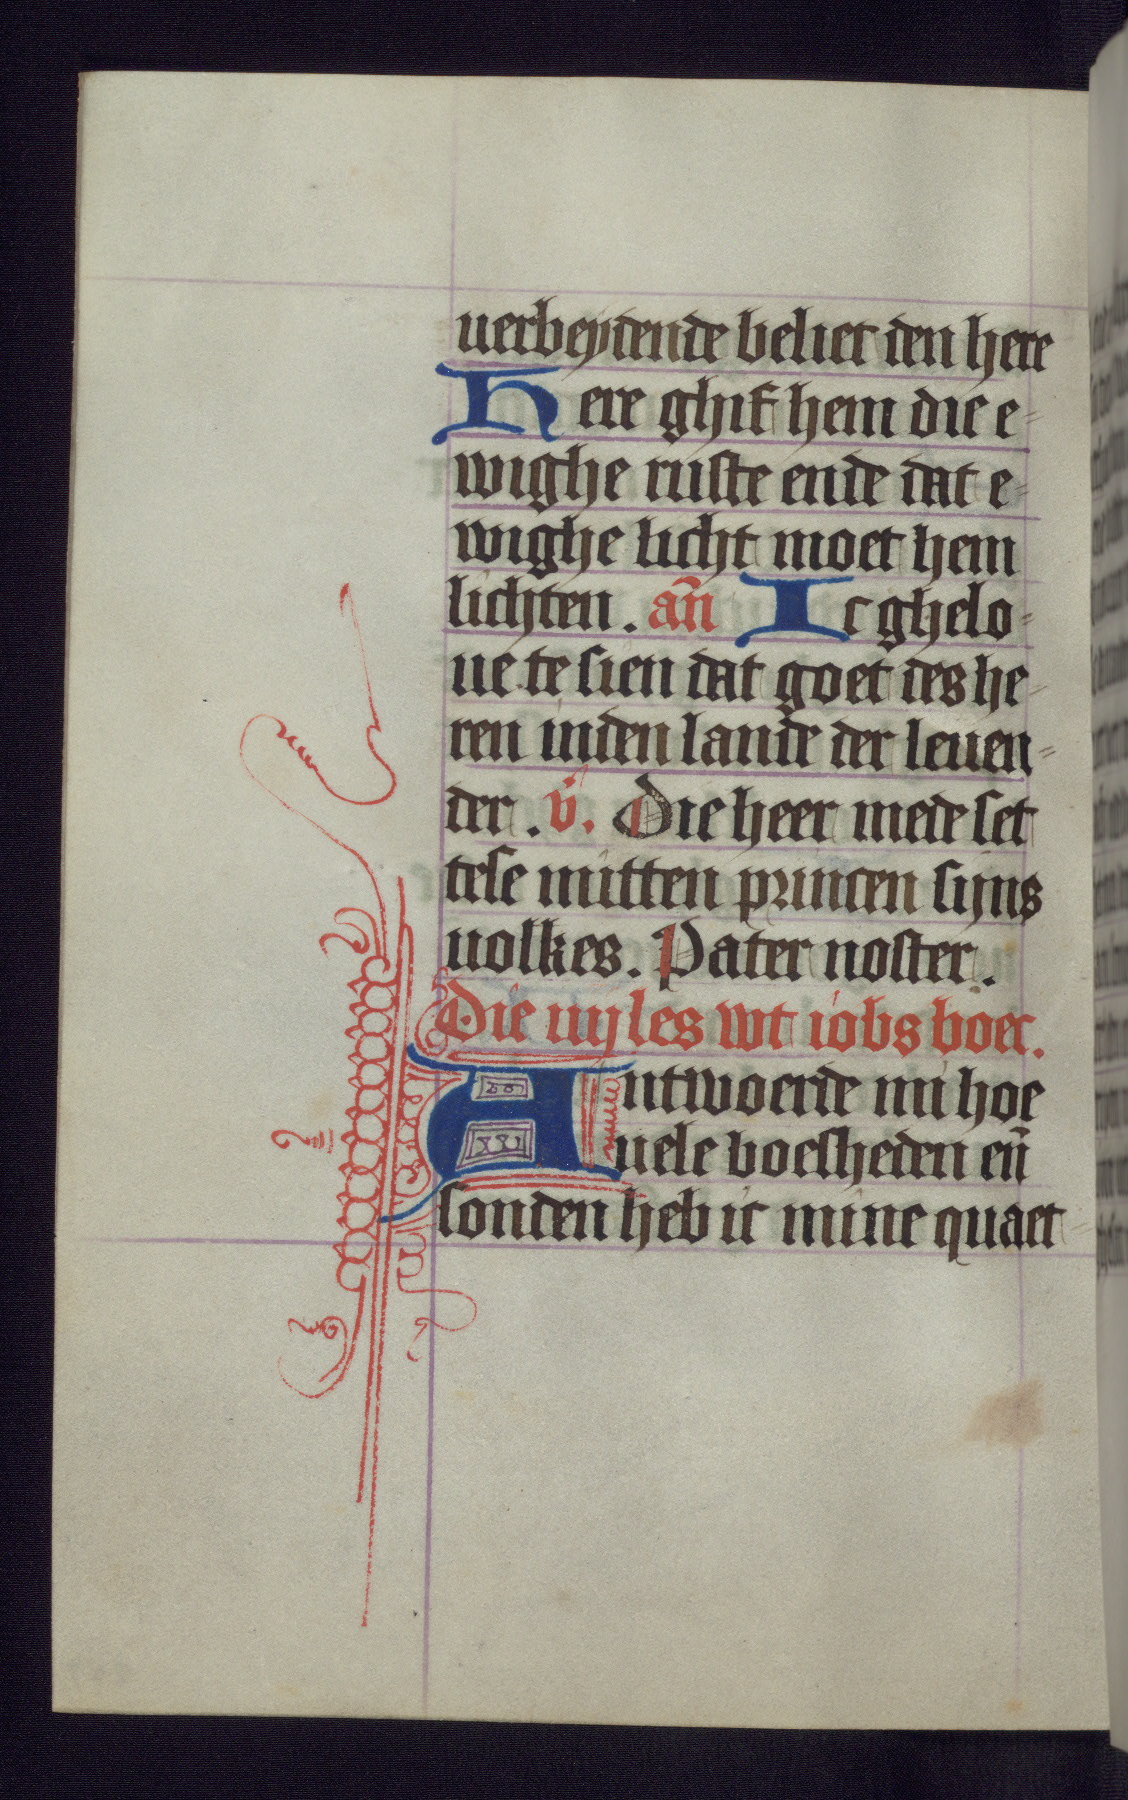 uerbeydende beliet den here
Here ghif hem die e-
wighe ruste ende dat e-
wighe licht moet hem
lichten. an̄ Ic ghelo-
ue te sien dat goet des he-
ren inden lande der leuen-
der. v̄. Die heer mede set
tese mitten princen sijns
uolkes. Pater noster.
Die iiij les wt iobs boec.
Antwoerde mi hoe
uele boesheden en̄
sonden heb ic mine quaet